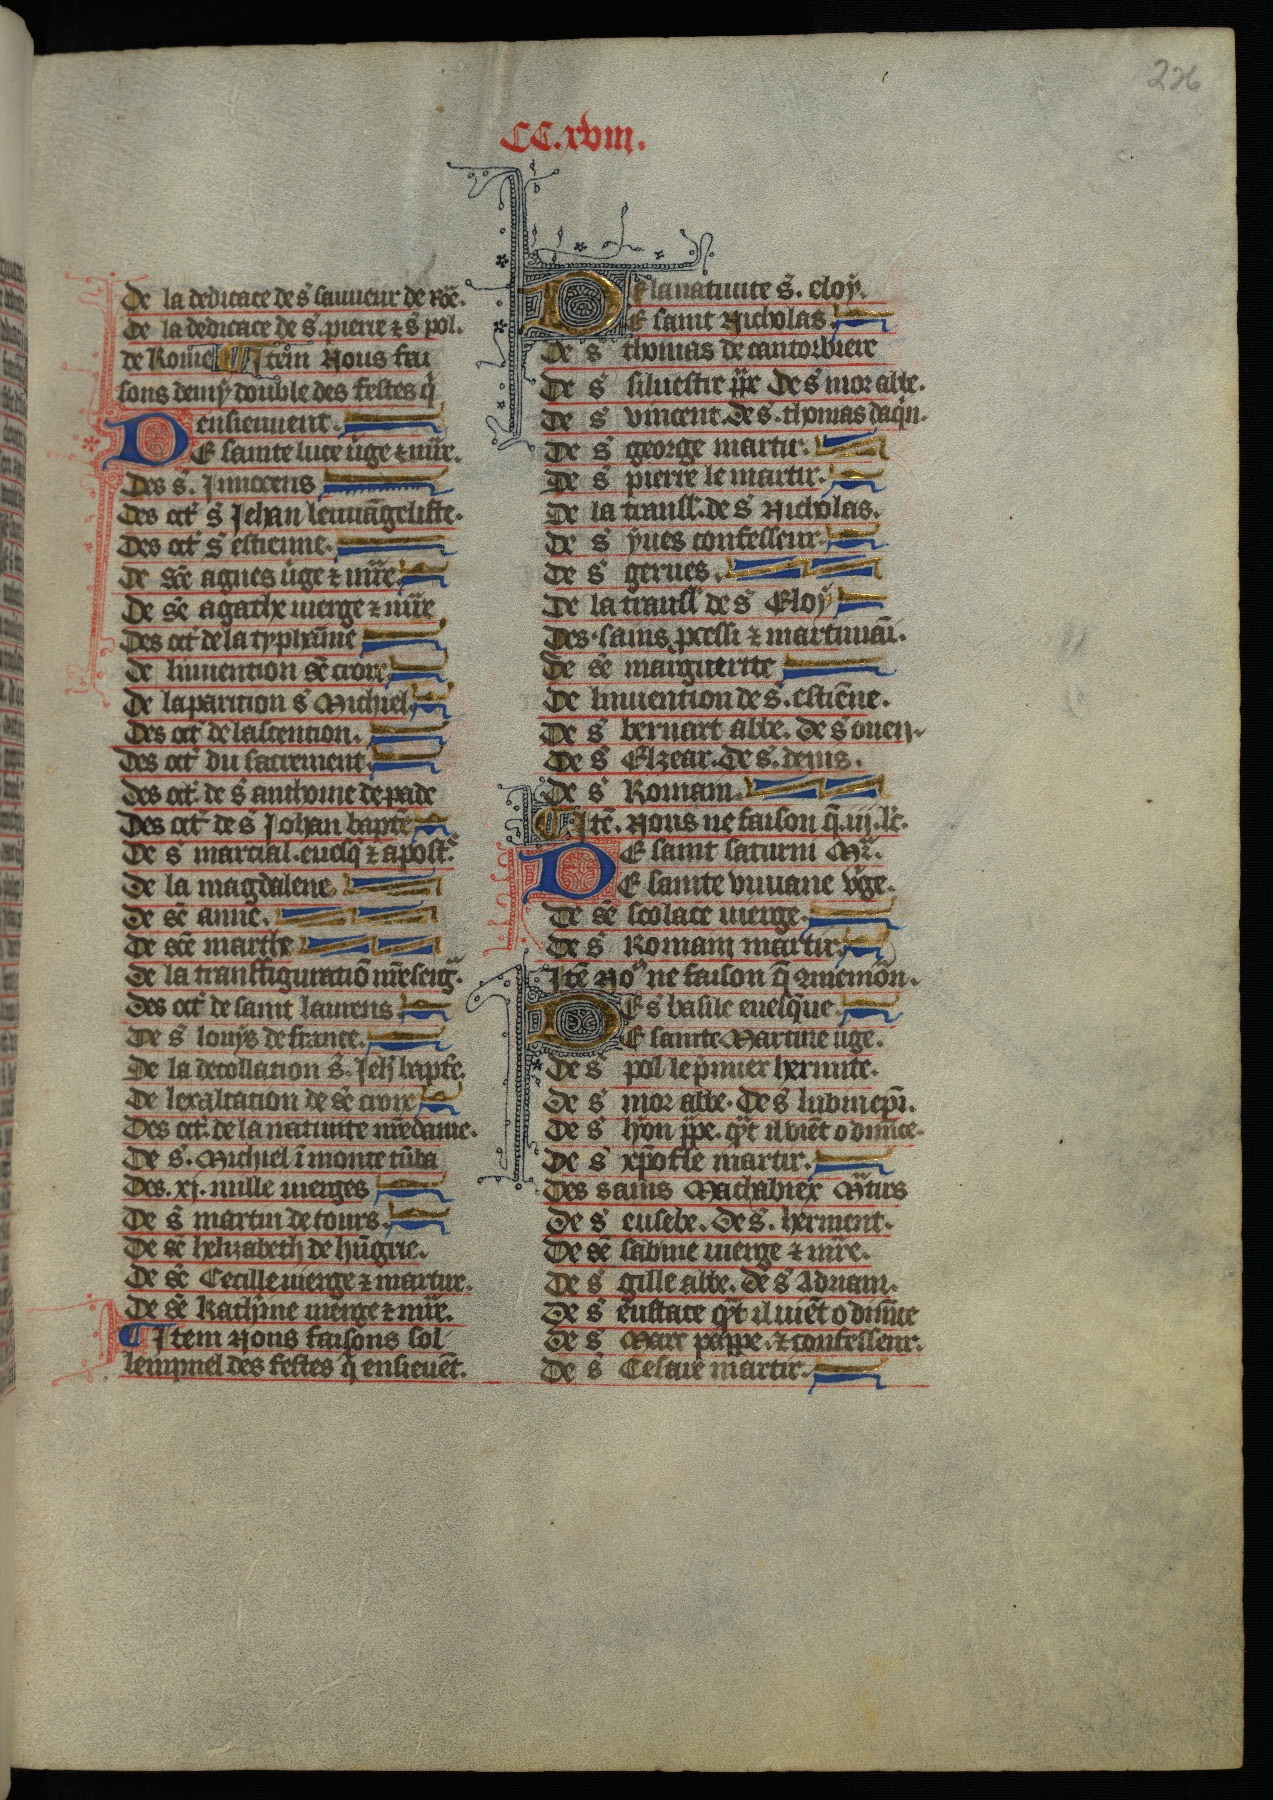 226
CC.xviii.
De la dedicace de s̃ sauueur de Rõe.
De la dedicace de s̃. pierre ⁊ s̃ pol.
de Rome Itẽm Nous fai
sons demy double des festes q̃
ensieuuent.
DE sainte luce ũge ⁊ mr̃e.
Des s̃. Innocens
Des oct̃ s̃ Jehan leuuãgeliste.
Des oct̃ s̃ estienne.
De sc̃e agnes ũge ⁊ mr̃e.
De sc̃e agathe uierge ⁊ mr̃e
Des oct̃ de la typhãine
De linuention sc̃e croix
De laparition s̃ Michiel.
Des oct̃ de lascention.
Des oct̃ du sacrement.
Des oct̃. de s̃ anthoine de pade
Des oct̃ de s̃ Johan bapte̾
De s̃ martial. euesq̃ ⁊ apost̃.
De la magdalene.
De sc̃e anne.
De sc̃e marthe
De la transfiguratiõ nr̃eseig̃r.
Des oct̃ de saint laurens
De s̃ louys de france.
De la decollation s̃. Jeh̃ bapt̃e.
De lexaltation de sc̃e croix
Des oct̃. de la natiuite nr̃edame.
De s̃. Michiel ĩ monte tũba
Des .xj. mille uierges
De s̃ martin de tours.
De sc̃e helizabeth de hũgrie.
De sc̃e Cecille uierge ⁊ martire.
De sc̃e Kath̃ine uierge ⁊ mr̃e.
Item Nous faisons sol
lempnel des festes q̃ ensieuẽt.
DE la natiuite s̃. eloy.
DE saint Nicholas.
De s̃ thomas de cantorbiere
De s̃ siluestre pp̃e De s̃ mor abbe.
De s̃ vincent. De s̃. thomas daq̃n.
De s̃ george martir.
De s̃ pierre le martir.
De la transl̃. de s̃ Nicholas.
De s̃ yues confesseur.
De s̃ gerues.
De la transl̃ de s̃ Eloy
Des sains p̃cessi ⁊ martiniãi.
De sc̃e marguerite
De linuention de s̃. estiẽne.
De s̃ bernart abbe. De s̃ ouen.
De s̃ Elzear. De s̃. denis.
De s̃ Romain.
Itẽ. Nous ne faison q̃ .iij. lc̃.
DE saint saturni Mr̃.
DE sainte viuiane v̾ge.
De sc̃e scolace uierge.
De s̃ Romain martir.
Itẽ Noꝰ ne faison q̃ mnemõn.
DE s̃ basile euesque.
DE sainte Martine ũge.
De s̃ pol le p̃mier hermite.
De s̃ mor abbe. De s̃ lubin ep̃i.
De s̃ hyon pp̃e. q̃t il viẽt o dim̃ce.
De s̃ xp̃ofle martir.
Des sains Machabiex Mr̃tirs
De s̃ eusebe. De s̃. herment.
De sc̃e sabine uierge ⁊ mr̃e.
De s̃ gille abbe. De s̃ Adriam.
De s̃ eustace q̃t il uiẽt o dim̃ce
De s̃ Marc pappe. ⁊ confesseur.
De s̃ Cesaire martir.